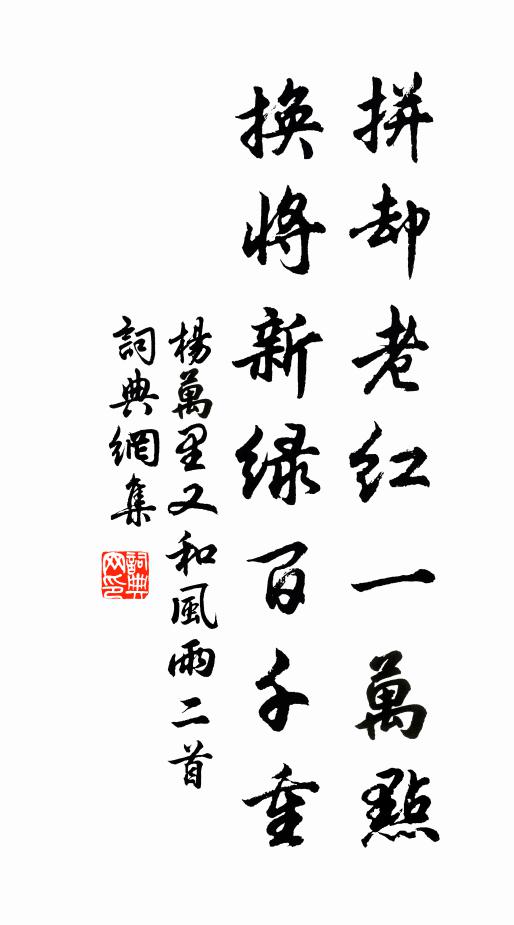 拼却老紅一萬點
換將新綠百千重
楊萬里又和風雨二首
詞典網集
詞典網印